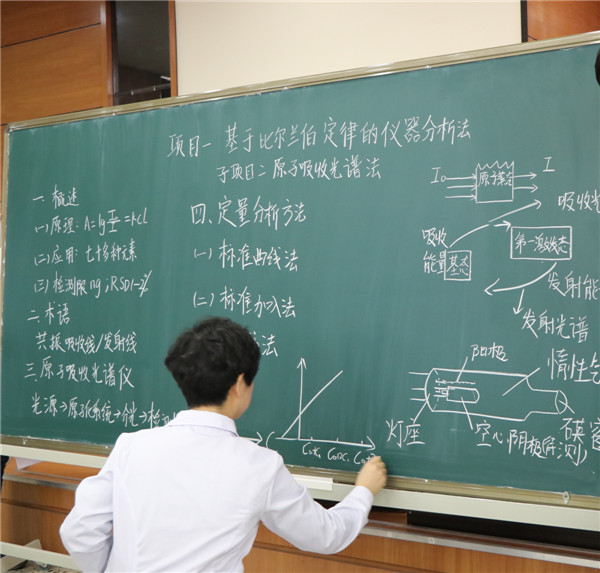 项目一 基于比尔兰伯定律的仪器分析法
子项目二 原子吸收光谱法
一、概述
(一)原理：A=lg
(二)应用：七十多种元素
(三)检测限 ng；RSD1-2%
二、术语
共振吸收线/发射线
三、原子吸收光谱仪
光源→原子化系统→
四、定量分析方法
(一)标准曲线法
(二)标准加入法
法
I₀
原子蒸气
I
吸收光
吸收
能量
基态
第一激发态
发射能
发射光谱
阳极
惰性气
灯座
空心阴极